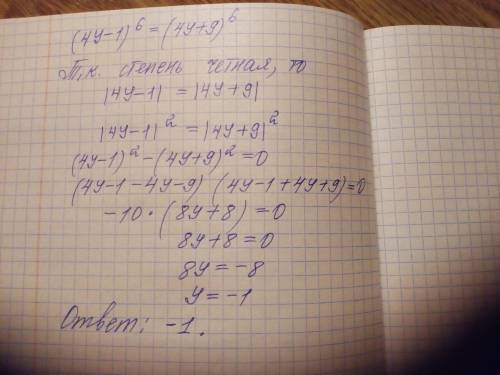 (4y-1)⁶ = (4y+9)⁶
Т.к. степень четная, то
|4y-1| = |4y+9|
|4y-1|² = |4y+9|²
(4y-1)² - (4y+9)² = 0
(4y-1-4y-9) (4y-1+4y+9)=0
-10 · (8y+8) = 0
8y+8 = 0
8y = -8
y = -1
Ответ: -1.